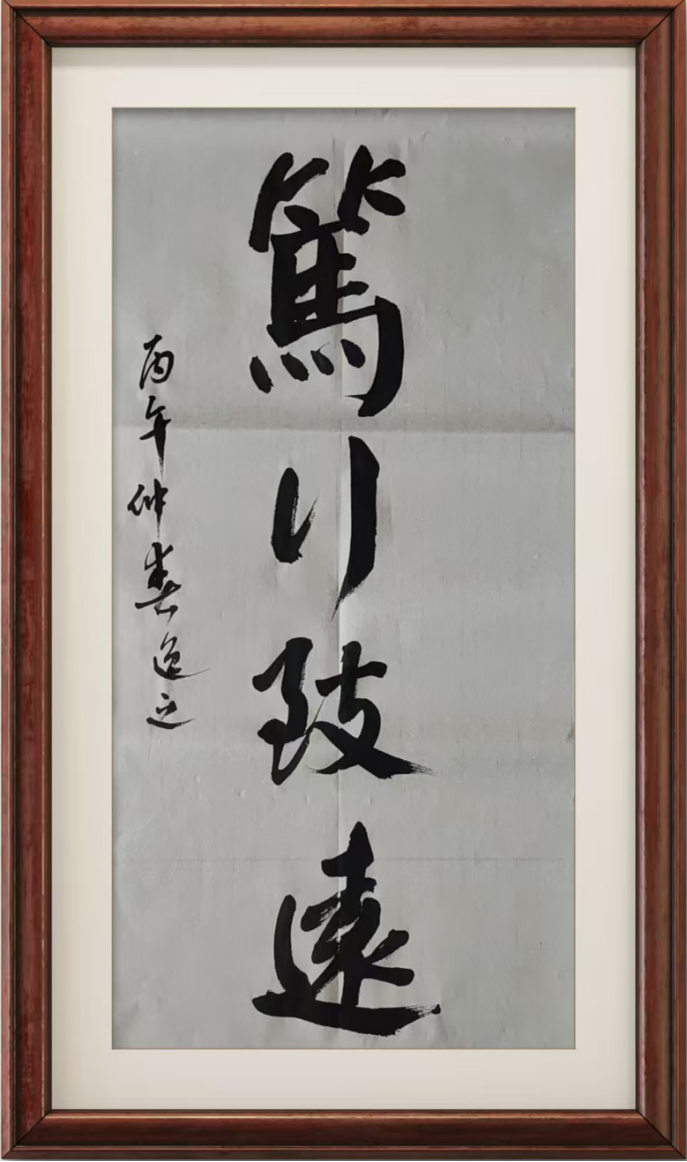 篤行致遠
丙午仲春逸之